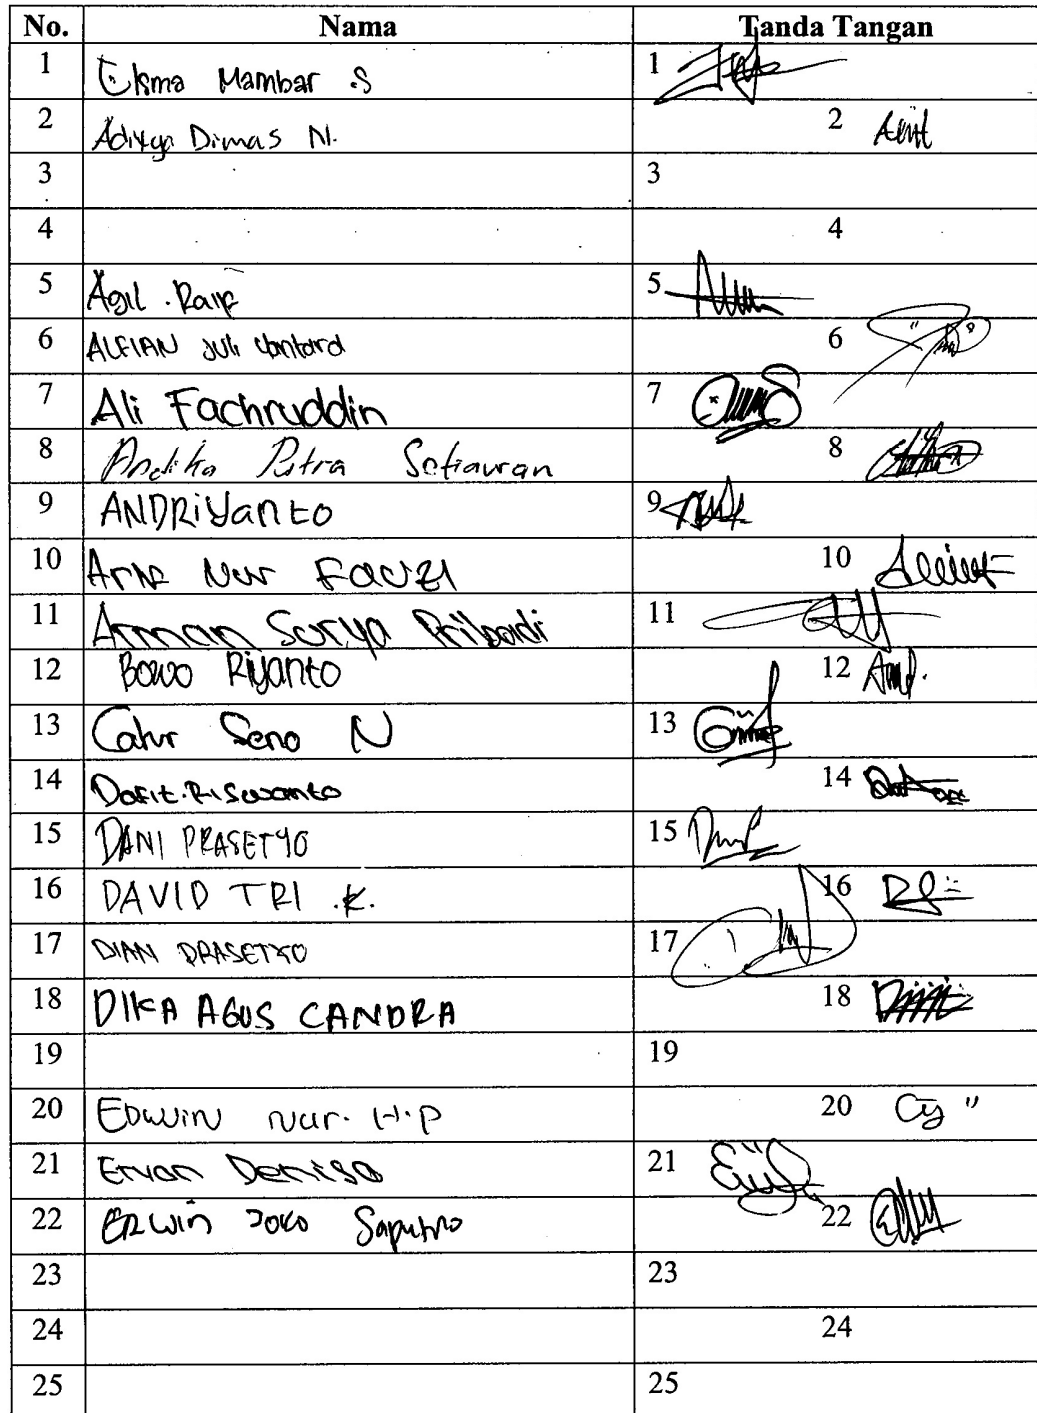 No. Nama Tanda Tangan
1 Eksma Mambar .S 1
2 Aditya Dimas N. 2
3 3
4 4
5 Agil . Raif 5
6 ALFIAN Juli 6
7 Ali Fachruddin 7
8 Andika Putra Setiawan 8
9 ANDRiYanto 9
10 Arif Nur FaUZI 10
11 Arman Surya Pribadi 11
12 Bowo Riyanto 12
13 Catur Seno N 13
14 Dafit. Riswanto 14
15 DANI PRASETYO 15
16 DAVID TRI .K. 16
17 DIAN PRASETYO 17
18 DIKA AGUS CANDRA 18
19 19
20 EDWIN Nur. H.P 20
21 Ervan Denisa 21
22 ERWin Joko Saputro 22
23 23
24 24
25 25